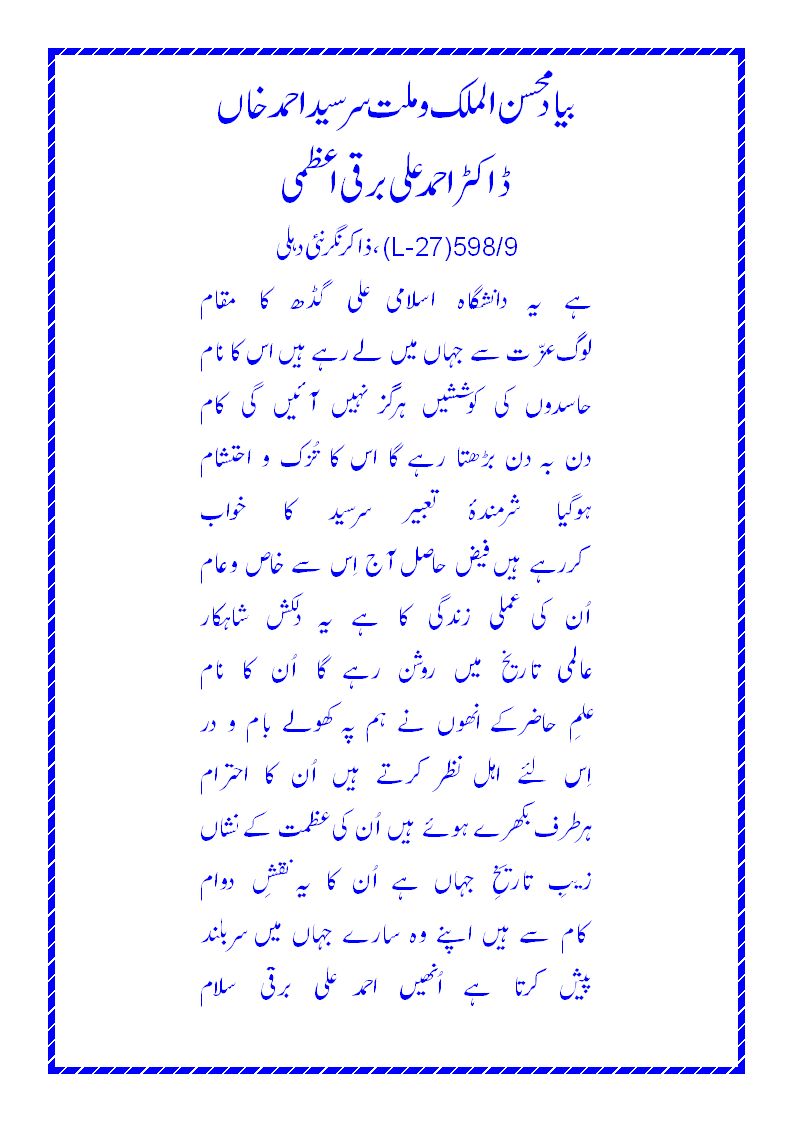 بیاد محسن الملک و ملت سرسید احمد خاں
ڈاکٹر احمد علی برقی اعظمی
598/9(L-27)، ذاکر نگر نئی دہلی
ہے یہ دانشگاہ اسلامی علی گڈھ کا مقام
لوگ عزّت سے جہاں میں لے رہے ہیں اس کا نام
حاسدوں کی کوششیں ہرگز نہیں آئیں گی کام
دن بہ دن بڑھتا رہے گا اس کا تُزک و احتشام
ہوگیا شرمندۂ تعبیر سرسید کا خواب
کررہے ہیں فیض حاصل آج اِس سے خاص وعام
اُن کی عملی زندگی کا ہے یہ دلکش شاہکار
عالمی تاریخ میں روشن رہے گا اُن کا نام
علمِ حاضر کے انھوں نے ہم پہ کھولے بام و در
اِس لئے اہل نظر کرتے ہیں اُن کا احترام
ہرطرف بکھرے ہوئے ہیں اُن کی عظمت کے نشاں
زیبِ تاریخِ جہاں ہے اُن کا یہ نقشِ دوام
کام سے ہیں اپنے وہ سارے جہاں میں سربلند
پیش کرتا ہے اُنھیں احمد علی برقی سلام